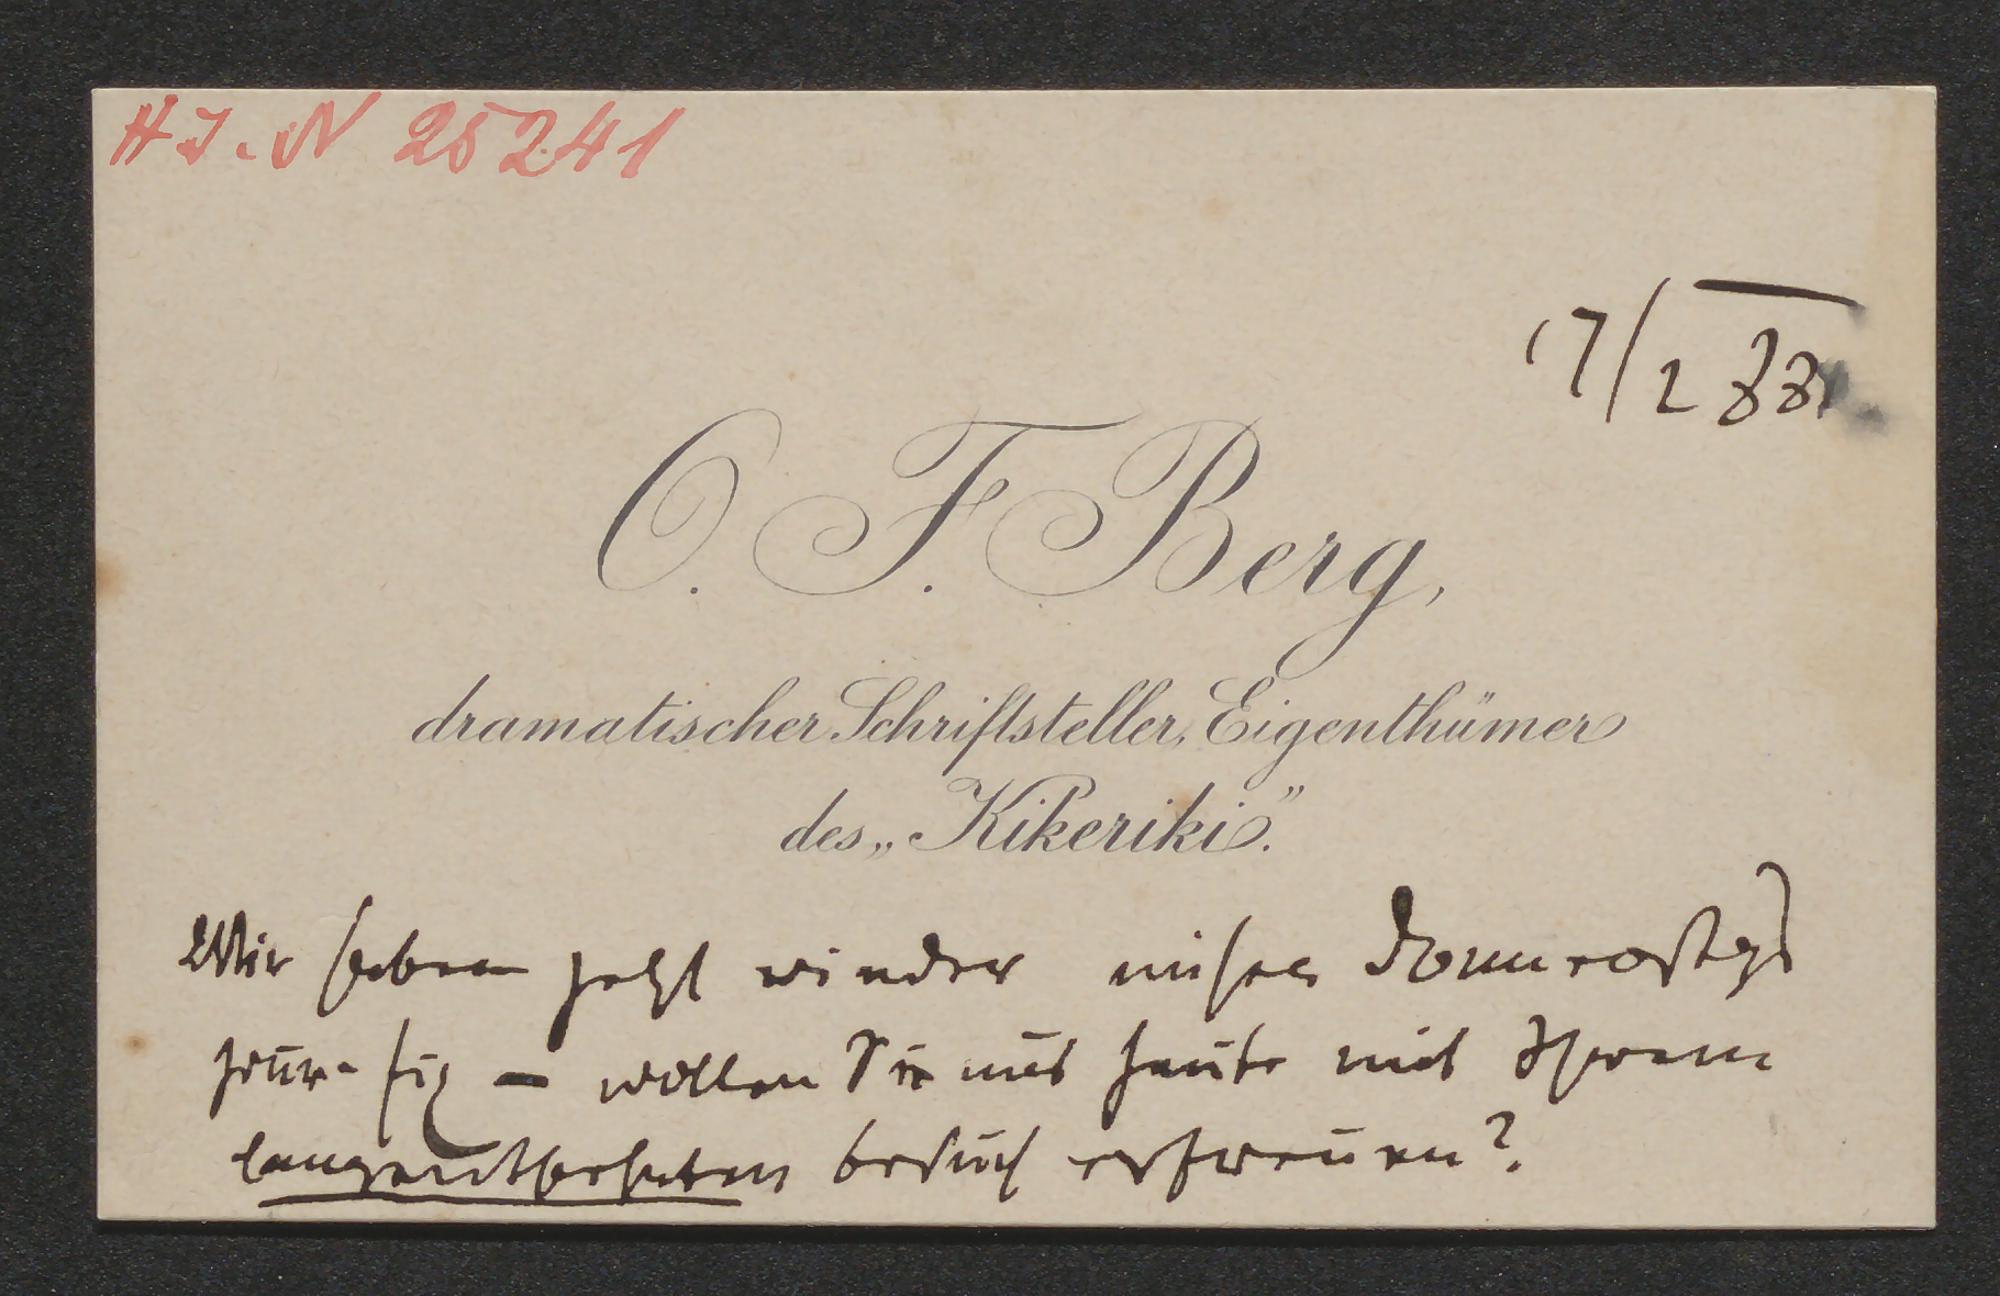 H I. N 25241
17/2 881
O. F. Berg,
dramatischer Schriftsteller, Eigenthümer
des „Kikeriki".
Wir haben jetzt wieder unsern Donnerstags
— wollen Sie uns heute mit Ihrem
langentbehrten Besuch erfreuen?